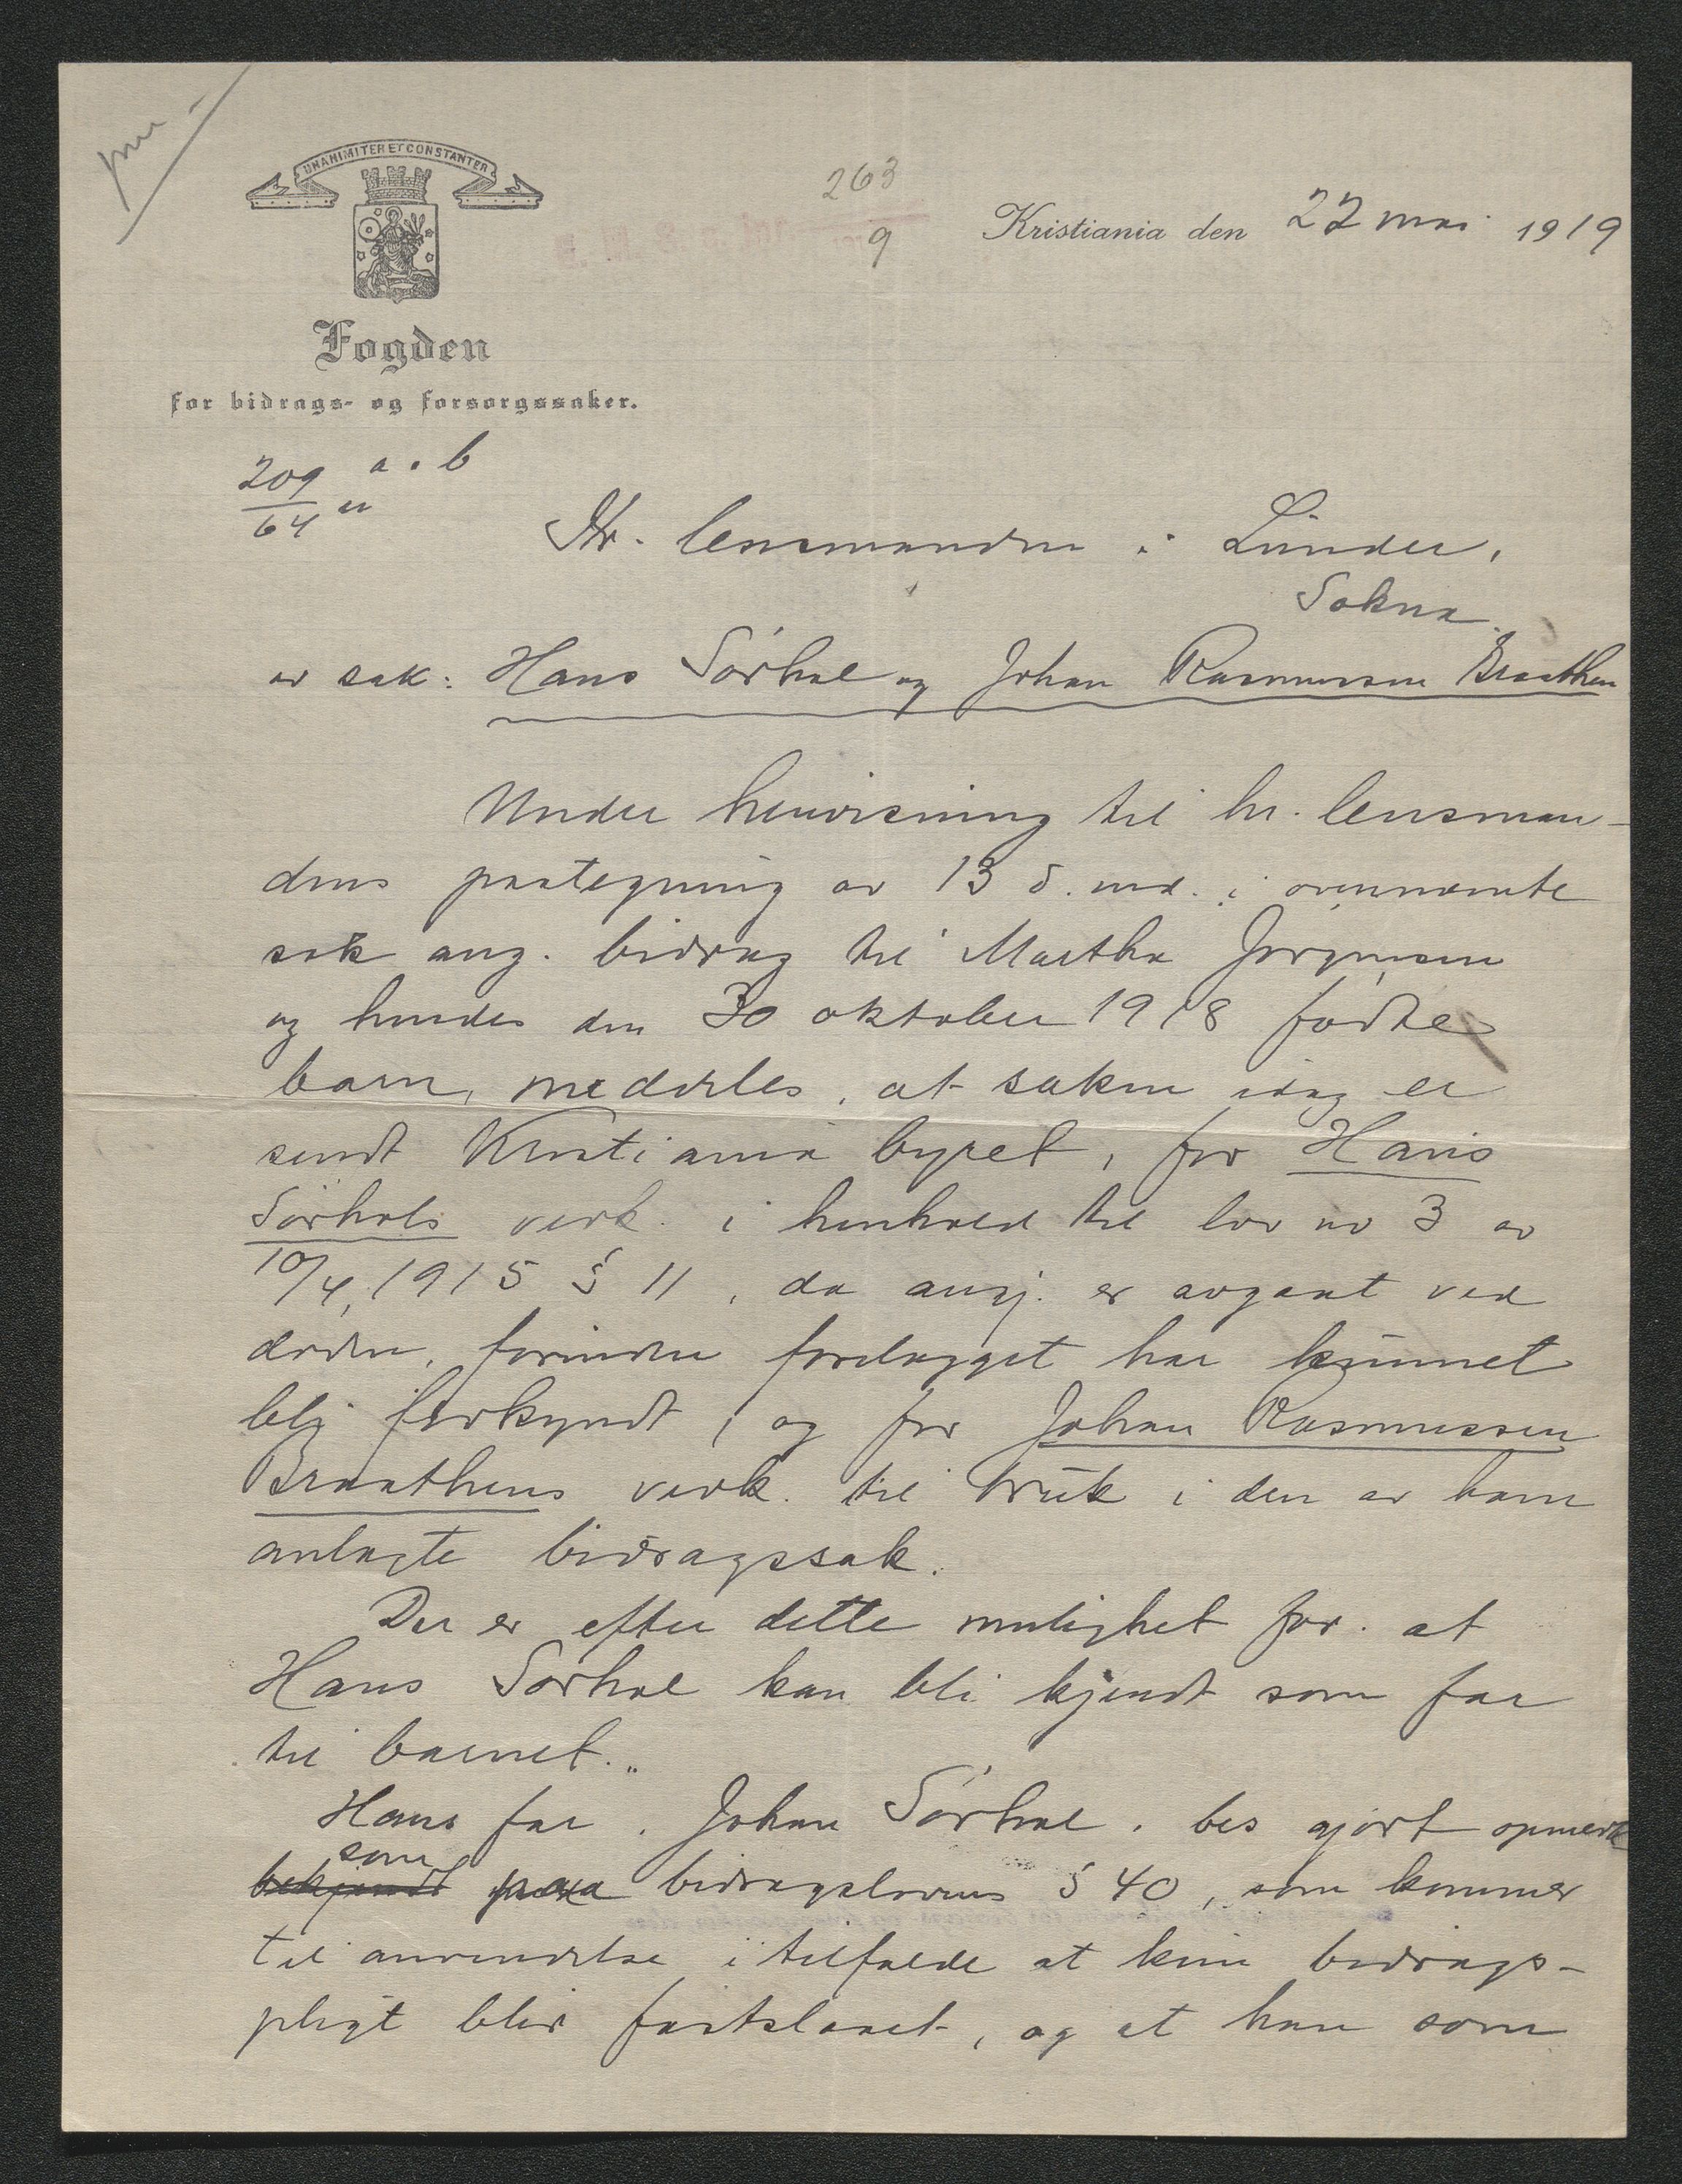 UNANIMITER ET CONSTANTER
263
9
Kristiania den 22 mai 1919
Fogden
for bidrags- og forsorgssaker.
209 a. b
64
Hr. lensmanden i Lunder,
Sokna.
ar sak: Hans Sørhol og Johan Rasmussen Braathen
Under henvisning til hr. lensman-
dens paategning av 13 d. md. i ovennævnte
sak ang. bidrag til Martha Jørgensen
og hendes den 30 oktober 1918 fødte
barn, meddeles, at saken idag er
sendt Kristiania byret, for Hans
Sørhols verk. i henhold til lov nr 3 av
10/4, 1915 § 11, da angj. er avgaat ved
døden, forinden forelægget har kunnet
bli forkyndt, og for Johan Rasmussen
Braathens verk. til bruk i den av ham
anlagte bidragssak.
Der er efter dette mulighet for at
Hans Sørhol kan bli kjendt som far
til barnet.
Hans far, Johan Sørhol, bes gjort opmerk
som
bekjendt paa bidragslovens § 40, som kommer
til anvendelse i tilfælde at hans bidrags-
pligt blir fastslaaet, og at han som